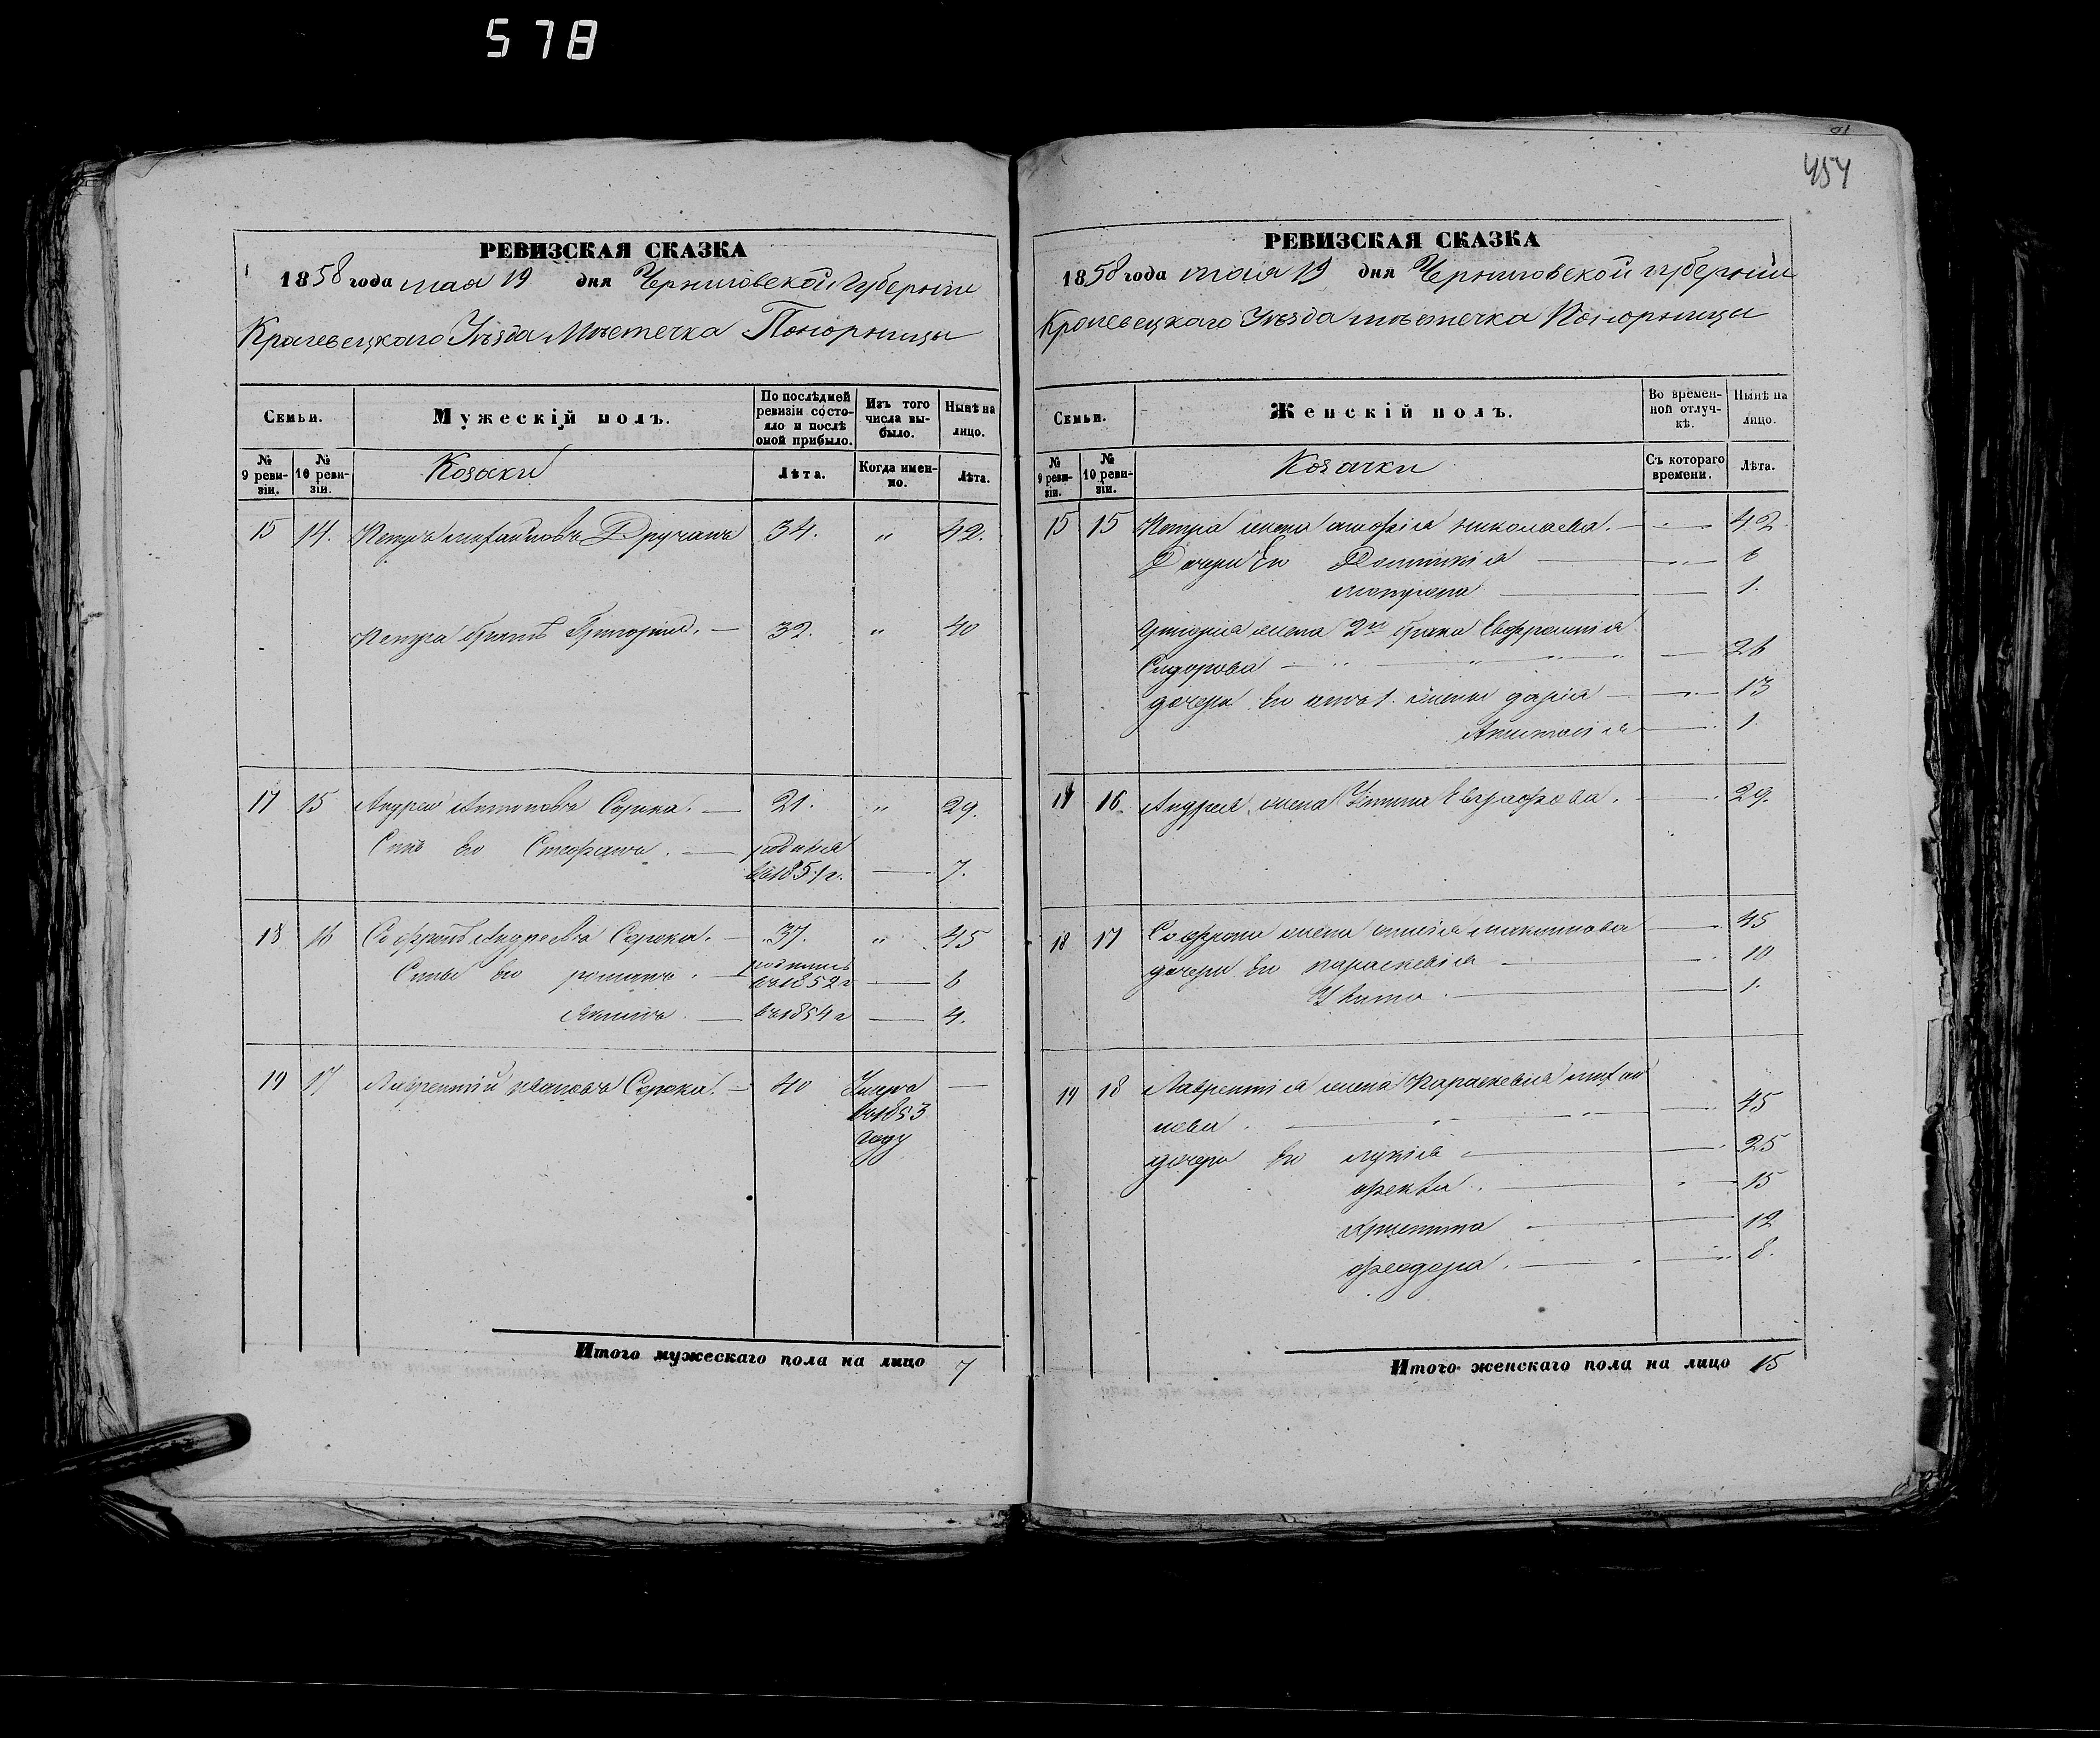 578
454
РЕВИЗСКАЯ СКАЗКА
1858 года мая 19 дня Черниговской Губерніи
Кролевецкаго Уѣзда Мѣстечка Понорницы
Семьи.
Мужескій полъ.
По послѣдней ревизіи состояло и послѣ оной прибыло.
Изъ того числа выбыло.
Нынѣ на лицо.
№ 9 ревизіи.
№ 10 ревизіи.
Козаки
Лѣта.
Когда именно.
Лѣта.
15 14. Петръ Михайловъ 34. " 42.
Петра братъ Григорій. — 32. " 40
17 15 Андрей Сорока. — 21. " 29.
Сынъ его Стефанъ. — родился
въ 1851 г. — 7.
18 16 Софронъ Андреевъ Сорока. — 37. " 45
Сыны его романъ. — родились
въ 1852 г — 6
Якимъ. — въ 1854 г — 4.
19 17 Лаврентій ивановъ Сорока. — 40 Умеръ —
въ 1853
году
Итого мужескаго пола на лицо 7
РЕВИЗСКАЯ СКАЗКА
1858 года мая 19 дня Черниговской губерніи
Кролевецкаго Уѣзда мѣстечка Понорницы
Семьи.
Женскій полъ.
Во временной отлучкѣ.
Нынѣ на лицо.
№ 9 ревизіи.
№ 10 ревизіи.
Козачки
Съ котораго времени.
Лѣта.
15 15 Петра жена николаева. — 42.
Дочери Его Домникія — 6
мотрона — 1.
Григорія жена 2го брака Евфросинія
Сидорова — 26
дочери его отъ 1. жены дарія — 13
— 1.
17 16. Андрея жена Евграфова. — 29.
18 17 Софрона жена — 45
дочери его параскевія — 10
— 1.
19 18 Лаврентія жена Параскевія михай
лова. — 45
дочери его лукія — 25
фекла. — 15
Христина — 12
феодора. — 8.
Итого женскаго пола на лицо 15